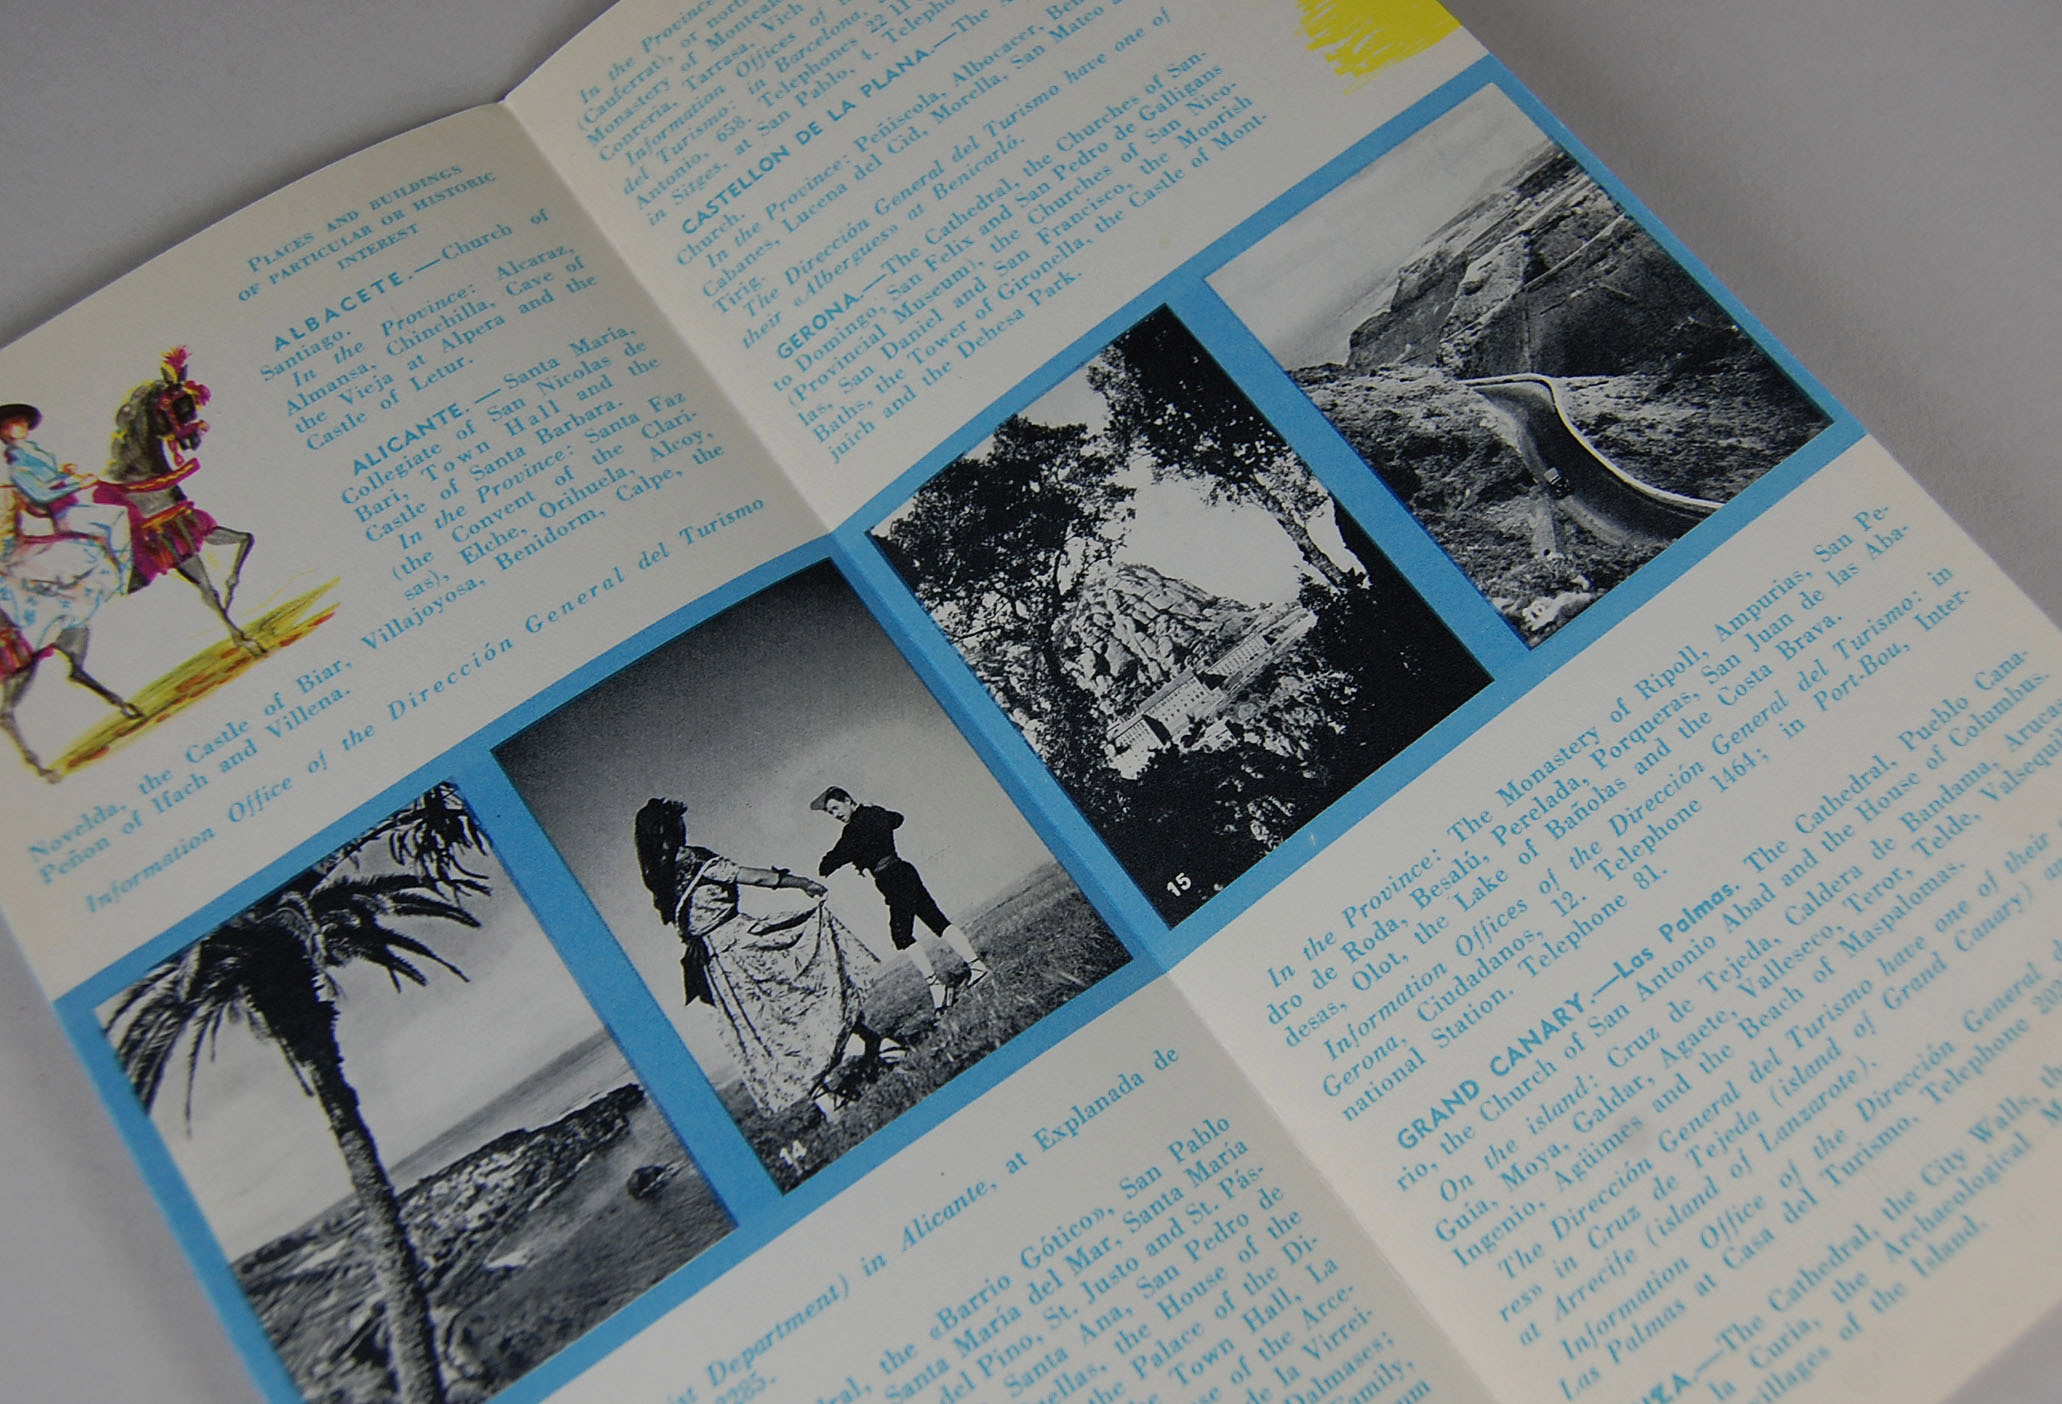 PLACES AND BUILDINGS
OF PARTICULAR OR HISTORIC
INTEREST
ALBACETE.—Church of
Santiago.
In the Province: Alcaraz,
Almansa, Chinchilla, Cave of
the Vieja at Alpera and the
Castle of Letur.
ALICANTE.—Santa María,
Collegiate of San Nicolas de
Bari, Town Hall and the
Castle of Santa Barbara.
In the Province: Santa Faz
(the Convent of the Clari-
sas), Elche, Orihuela, Alcoy,
Villajoyosa, Benidorm, Calpe, the
Novelda, the Castle of Biar,
Peñon of Ifach and Villena.
Information Office of the Dirección General del Turismo
14
ist Department) in Alicante, at Explanada de
2285.
dral, the «Barrio Gótico», San Pablo
Santa María del Mar, Santa María
del Pino, St. Justo and St. Pás-
Santa Ana, San Pedro de
uellas, the House of the
the Palace of the Di-
Town Hall, La
se of the Arce-
de la Virrei-
Dalmases;
Family,
In the Province
(Cauferrat), or north
Monastery of Montealegre
Conreria, Tarrasa, Vich
Information Offices of the
del Turismo: in Barcelona,
Antonio, 658. Telephones 22 11
in Sitges, at San Pablo, 4. Telephone
CASTELLON DE LA PLANA.—The
Church.
In the Province: Peñiscola, Albocacer,
Cabanes, Lucena del Cid, Morella, San Mateo
Tirig.
The Dirección General del Turismo have one of
their «Albergues» at Benicarló.
GERONA.—The Cathedral, the Churches of San-
to Domingo, San Felix and San Pedro de Galligans
(Provincial Museum), the Churches of San Nico-
las, San Daniel and San Francisco, the Moorish
Baths, the Tower of Gironella, the Castle of Mont-
juich and the Dehesa Park.
15
In the Province: The Monastery of Ripoll, Ampurias, San Pe-
dro de Roda, Besalú, Perelada, Porqueras, San Juan de las Aba-
desas, Olot, the Lake of Bañolas and the Costa Brava.
Information Offices of the Dirección General del Turismo: in
Gerona, Ciudadanos, 12. Telephone 1464; in Port-Bou, Inter-
national Station. Telephone 81.
GRAND CANARY.—Las Palmas. The Cathedral, Pueblo Cana-
rio, the Church of San Antonio Abad and the House of Columbus.
On the island: Cruz de Tejeda, Caldera de Bandama, Arucas,
Guía, Moya, Galdar, Agaete, Vallesco, Teror, Telde, Valsequi
Ingenio, Agüimes and the Beach of Maspalomas.
The Dirección General del Turismo have one of their
res» in Cruz de Tejeda (island of Grand Canary)
at Arrecife (island of Lanzarote).
Information Office of the Dirección General
Las Palmas at Casa del Turismo. Telephone
The Cathedral, the City Walls,
la Curia, the Archaeological
villages of the Island.